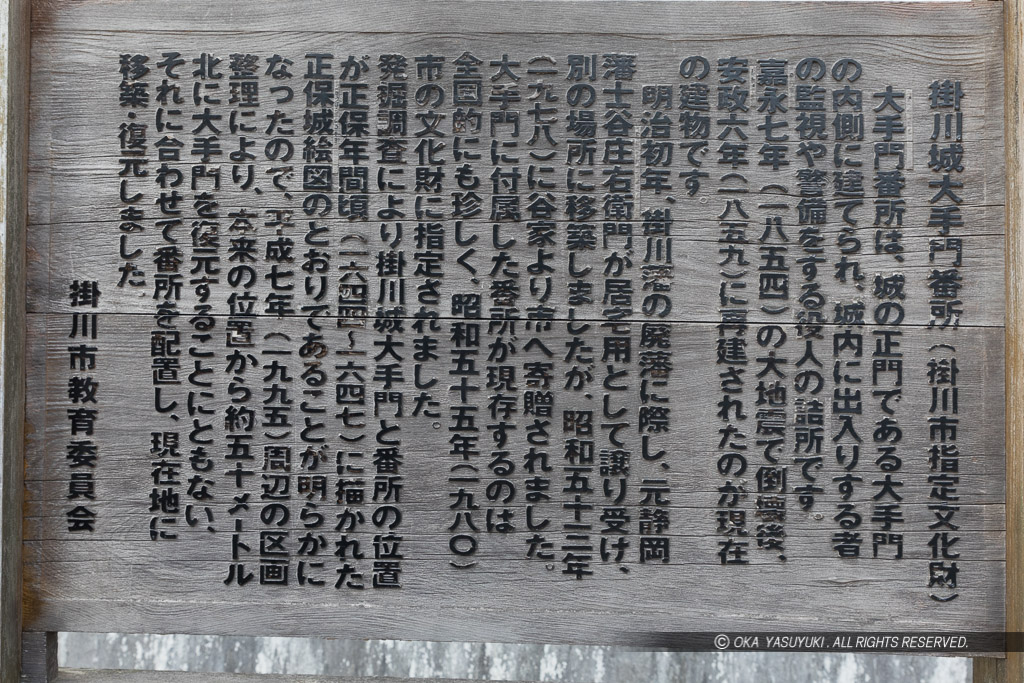 掛川城大手門番所（掛川市指定文化財）
大手門番所は、城の正門である大手門
の内側に建てられ、城内に出入りする者
の監視や警備をする役人の詰所です。
嘉永七年（一八五四）の大地震で倒壊後、
安政六年（一八五九）に再建されたのが現在
の建物です。
明治初年、掛川藩の廃藩に際し、元静岡
藩士谷庄右衛門が居宅用として譲り受け、
別の場所に移築しましたが、昭和五十三年
（一九七八）に谷家より市へ寄贈されました。
大手門に付属した番所が現存するのは
全国的にも珍しく、昭和五十五年（一九八〇）
市の文化財に指定されました。
発掘調査により掛川城大手門と番所の位置
が正保年間頃（一六四四～一六四七）に描かれた
正保城絵図のとおりであることが明らかに
なったので、平成七年（一九九五）周辺の区画
整理により、本来の位置から約五十メートル
北に大手門を復元することにともない、
それに合わせて番所を配置し、現在地に
移築・復元しました。
掛川市教育委員会
© OKA YASUYUKI. ALL RIGHTS RESERVED.